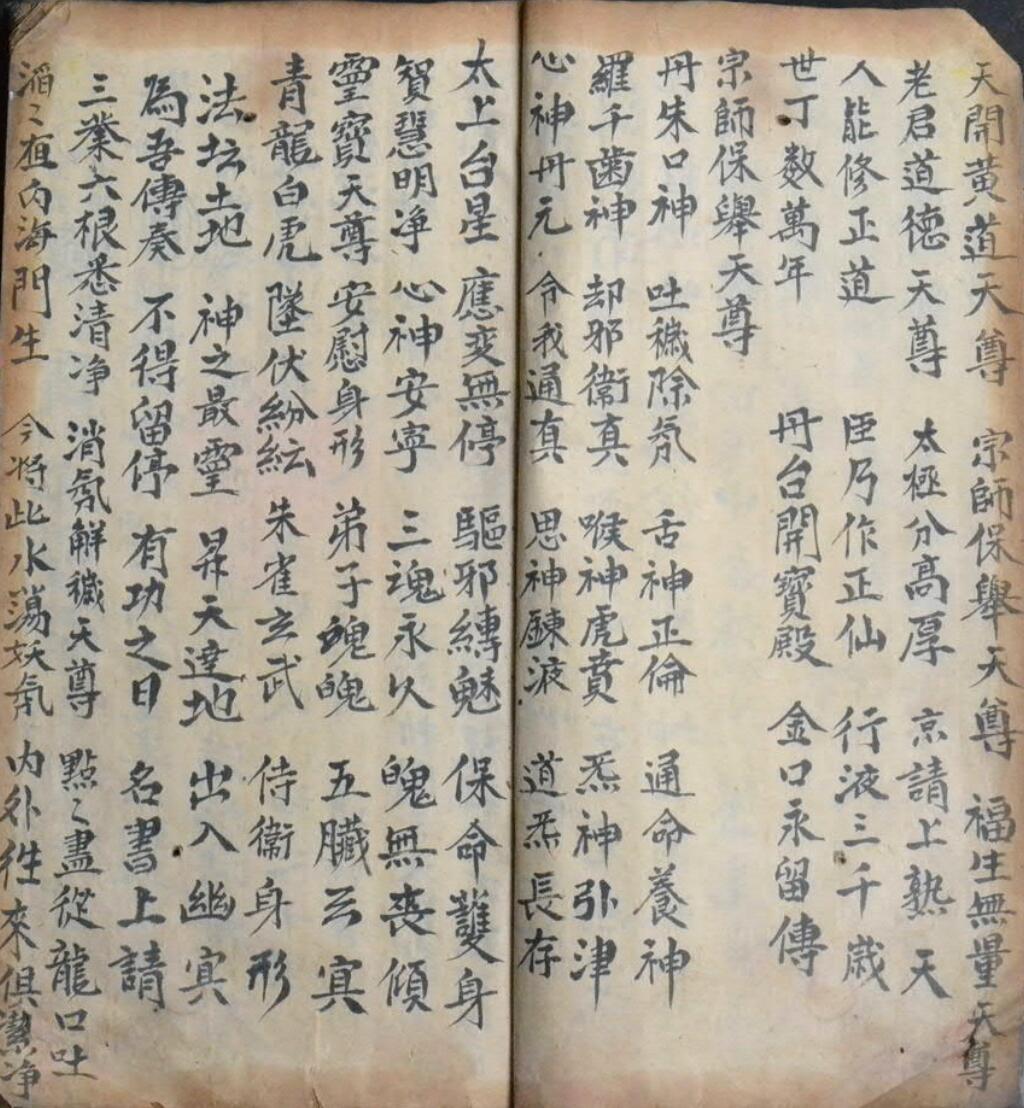 天開黃道天尊 宗師保舉天尊 福生無量天尊
老君道德天尊 太極分高厚 京請上熟天
人能修正道 臣乃作正仙 行液三千歲
世丁数萬年 丹台開寶殿 金口永留傳
宗師保舉天尊
丹朱口神 吐穢除氛 舌神正倫 通命養神
羅千齒神 却邪衛真 喉神虎賁 炁神引津
心神丹元 令我通真 思神鍊液 道炁長存
太上台星 應变無停 驅邪縛魅 保命護身
智慧明净 心神安寧 三魂永久 魄無喪傾
靈寶天尊 安慰身形 弟子魂魄 五臟玄冥
青龍白虎 墜伏紛紜 朱雀玄武 侍衛身形
法坛土地 神之最靈 昇天達地 出入幽冥
為吾傳奏 不得留停 有功之日 名書上請
三業六根悉清净 消氛解穢天尊 點〻盡從龍口吐
滔〻直向海門生 今將此水蕩妖氛 内外往來俱潔净